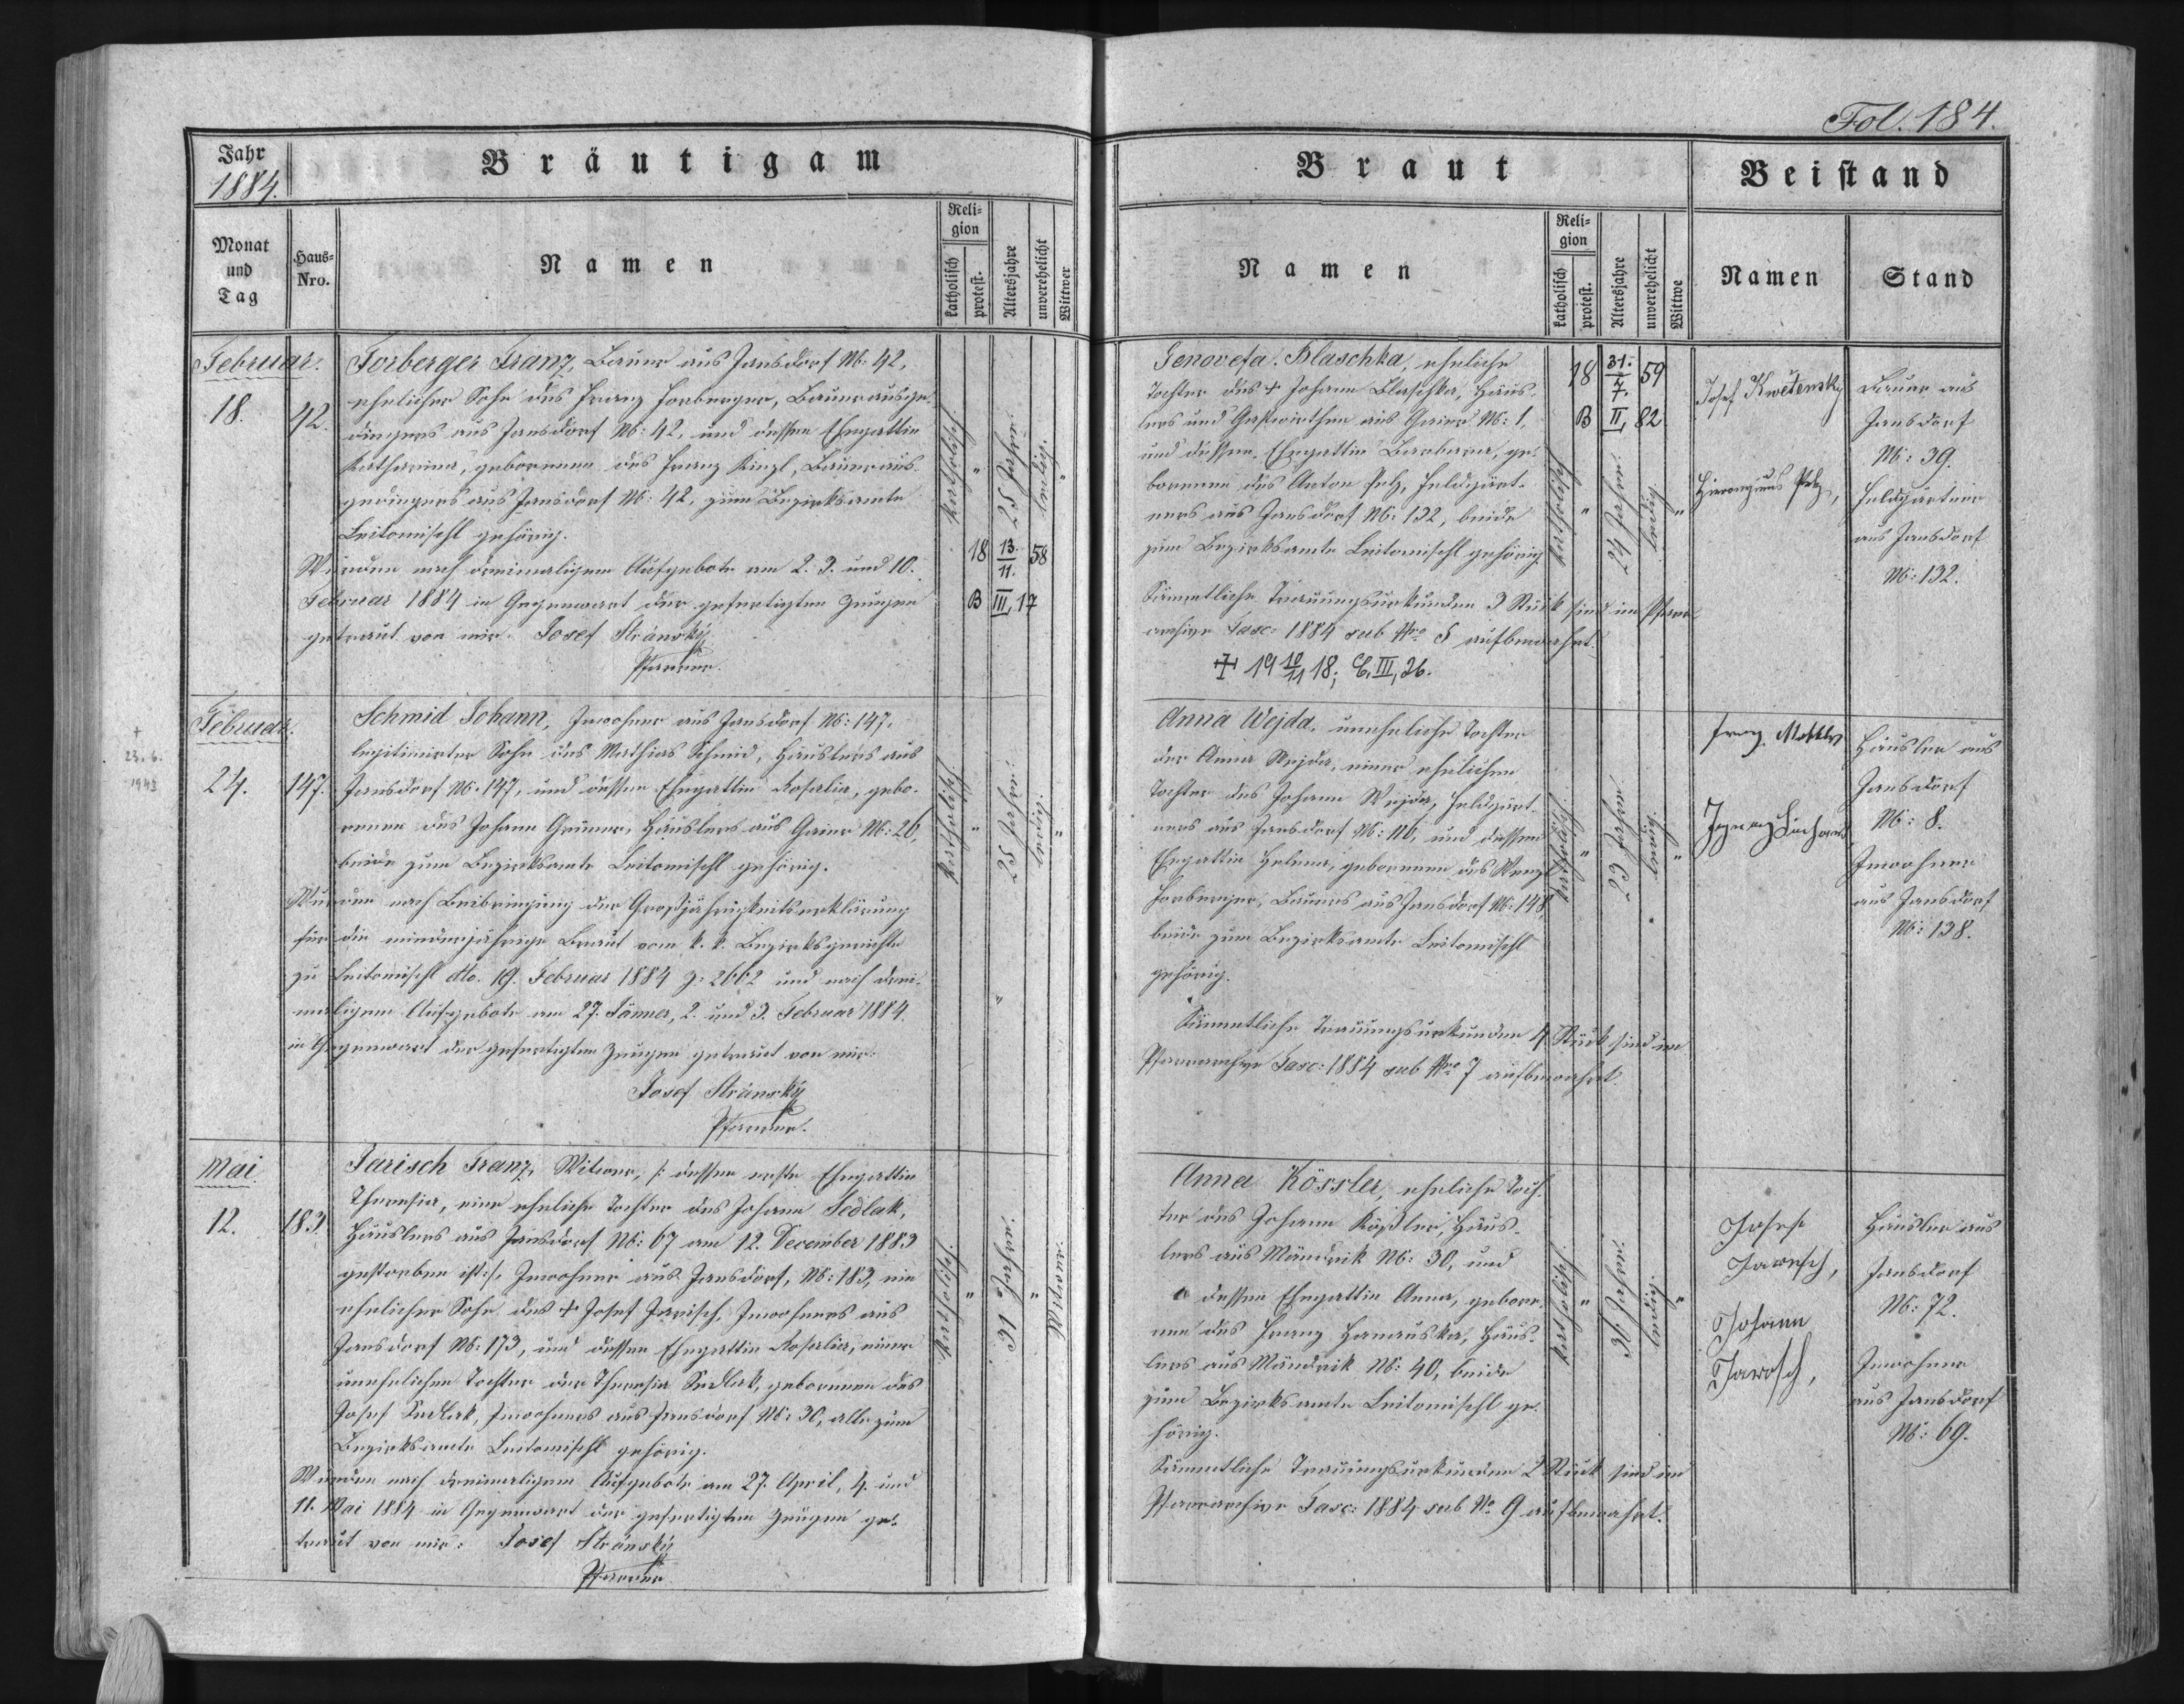 Fol. 184.
Jahr
1884.
Bräutigam
Monat
und
Tag
Haus-
Nro.
Namen
Reli-
gion
katholisch
protest.
Altersjahre
unverehelicht
Wittwer
Februar.
18.
42.
Forberger Franz, Bauer aus Jansdorf N: 42,
ehelicher Sohn des Franz Forberger, Bauerausge-
dingers aus Jansdorf N: 42, und dessen Ehegattin
Katharina, geborenen des Franz Kinzl, Baueraus-
gedingers aus Jansdorf N: 42, zum Bezirksamte
Leitomischl gehörig.
Wurden nach dreimaligem Aufgebote am 2. 3. und 10.
Februar 1884 in Gegenwart der gefertigten Zeugen
getraut von mir. Josef Stránský
Pfarrer.
katholisch
"
25 Jahre.
ledig.
"
18 13./11. 58
B III, 17
Februar.
24.
147.
+
23. 6.
1943
Schmid Johann, Inwohner aus Jansdorf N: 147,
legitimirter Sohn des Mathias Schmid, Häuslers aus
Jansdorf N: 147, und dessen Ehegattin Rosalia, gebo-
renen des Johann Grüner, Häuslers aus Gaier N: 26,
beide zum Bezirksamte Leitomischl gehörig.
Wurden nach Beibringung der Großjährigkeitserklärung
für die minderjährige Braut vom k. k. Bezirksgerichte
zu Leitomischl dto. 19. Februar 1884 z: 2662 und nach drei-
maligem Aufgebote am 27. Jänner, 2. und 3. Februar 1884.
in Gegenwart der gefertigten Zeugen getraut von mir:
Josef Stránský
Pfarrer.
katholisch.
"
25 Jahre.
ledig.
"
Mai.
12.
183.
Jarisch Franz, Witwer, /: dessen erste Ehegattin
Theresia, eine eheliche Tochter des Johann Sedlak,
Häuslers aus Jansdorf N: 67 am 12. December 1883
gestorben ist :/, Inwohner aus Jansdorf, N: 183, ein
ehelicher Sohn des + Josef Jarisch, Inwohners aus
Jansdorf N: 173, und dessen Ehegattin Rosalia, einer
unehelichen Tochter der Theresia Sedlak, geborenen des
Josef Sedlak, Inwohners aus Jansdorf N: 30, alle zum
Bezirksamte Leitomischl gehörig.
Wurden nach dreimaligem Aufgebote am 27. April, 4. und
11. Mai 1884 in Gegenwart der gefertigten Zeugen ge-
traut von mir: Josef Stránský
Pfarrer
katholisch.
"
31 Jahre.
"
Witwer.
Braut
Namen
Reli-
gion
katholisch
protest.
Altersjahre
unverehelicht
Wittwe
Beistand
Namen
Stand
Genovefa Blaschka, eheliche
Tochter des + Johann Blaschka, Häus-
lers und Gastwirthen aus Gaier N: 1,
und dessen Ehegattin Barbara, ge-
borenen des Anton Pelz, Feldgärt-
ners aus Jansdorf N: 132, beide
zum Bezirksamte Leitomischl gehörig.
Sämmtliche Trauungsurkunden 3 Stück sind im Pfarr-
archive Fasc: 1884 sub Nro 5 aufbewahrt.
+ 19 10/11 18; C. III, 26.
18 31./7. 59
B II, 82
katholisch
"
24 Jahre.
ledig.
"
Josef Kwětensky
Hieronymus Pelz,
Bauer aus
Jansdorf
N: 39.
Feldgärtner
aus Jansdorf
N: 132.
Anna Wejda, uneheliche Tochter
der Anna Wejda, einer ehelichen
Tochter des Johann Wejda, Feldgärt-
ners aus Jansdorf N: 116, und dessen
Ehegattin Helena, geborenen des Wenzl
Forberger, Bauers aus Jansdorf N: 148,
beide zum Bezirksamte Leitomischl
gehörig.
Sämmtliche Trauungsurkunden 4 Stück sind im
Pfarrarchive Fasc: 1884 sub Nro 7 aufbewahrt.
katholisch.
"
23 Jahre.
ledig.
"
Franz
Ignaz
Häusler aus
Jansdorf
N: 8.
Inwohner
aus Jansdorf
N: 138.
Anna Kössler, eheliche Toch-
ter des Johann Kößler, Häus-
lers aus Mändrik N: 30, und
dessen Ehegattin Anna, gebore-
nen des Franz Hanauska, Häus-
lers aus Mändrik N: 40, beide
zum Bezirksamte Leitomischl ge-
hörig.
Sämmtliche Trauungsurkunden 2 Stück sind im
Pfarrarchive Fasc: 1884 sub No 9 aufbewahrt.
katholisch.
"
36 Jahre.
ledig.
"
Josef
Jarosch,
Johann
Jarosch,
Häusler aus
Jansdorf
N: 72.
Inwohner
aus Jansdorf
N: 69.